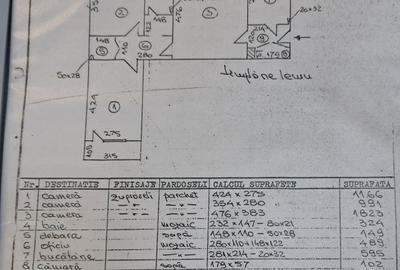 35
2
148
476
3
20×32
214
120
9
179
8
148
110
122
6
280
5
50×28
tâmplărie lemn
424
1
275
105
315
Nr. DESTINATIE FINISAJE PARDOSELI CALCUL SUPRAFETE SUPRAFATA
1 cameră zugrăveli parchet 424 × 275 1166
2 cameră —"— —"— 354 × 280 991
3 cameră —"— —"— 476 × 383 1823
4 baie mozaic 232 × 147 - 80×21 324
5 debara șapă 148 × 110 - 50×28 149
6 oficiu mozaic 280×110+148×122 489
7 bucătărie —"— 281×214 - 20×32 595
8 cămară șapă 179 × 57 102